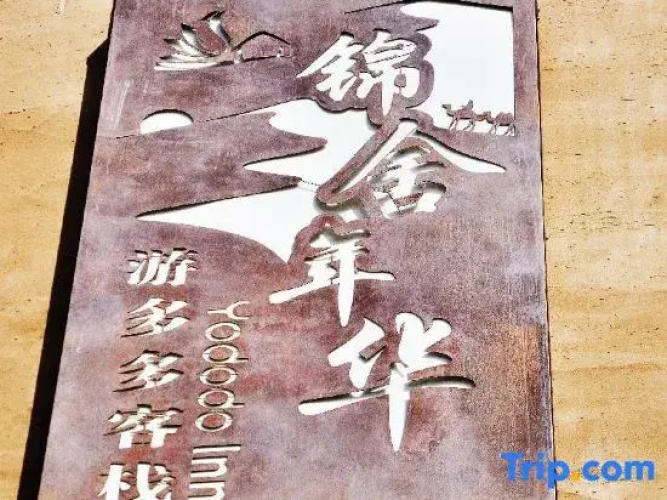 锦舍年华
游多多客栈
Yododo Inn
Trip.com